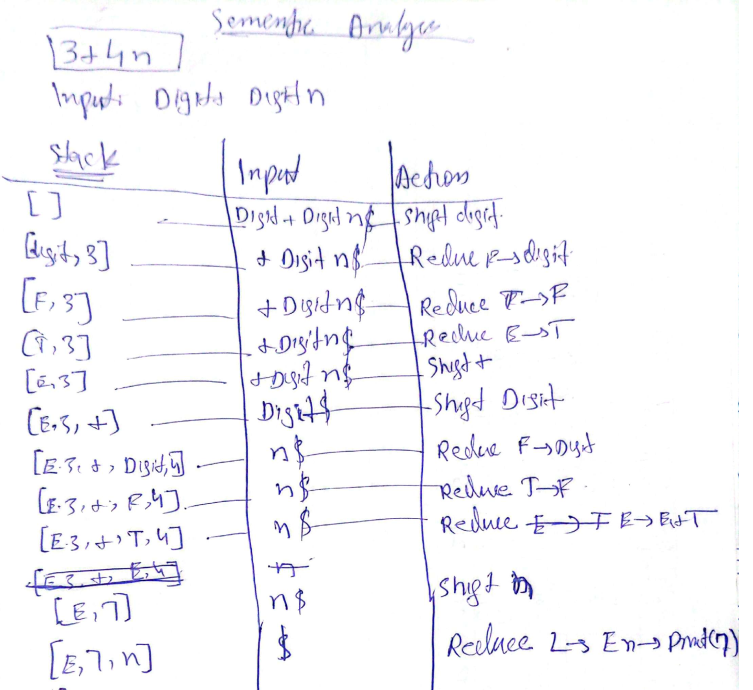 Sementic Analyse
3+4n
Input: Digit+ Digit n
Stack Input Action
[ ] Digit + Digit n$ Shift digit.
[digit, 3] + Digit n$ Reduce F→digit
[F, 3] + Digit n$ Reduce T→F
[T, 3] + Digit n$ Reduce E→T
[E, 3] + Digit n$ Shift +
[E.3, +] Digit $ Shift Digit
[E.3, +, Digit, 4] n$ Reduce F→Digit
[E.3, +, F, 4] n$ Reduce T→F
[E.3, +, T, 4] n$ Reduce E→T E→E+T
[E.3, +, E, 4] n
[E, 7] n$ Shift n
[E, 7, n] $ Reduce L→En→Print(7)